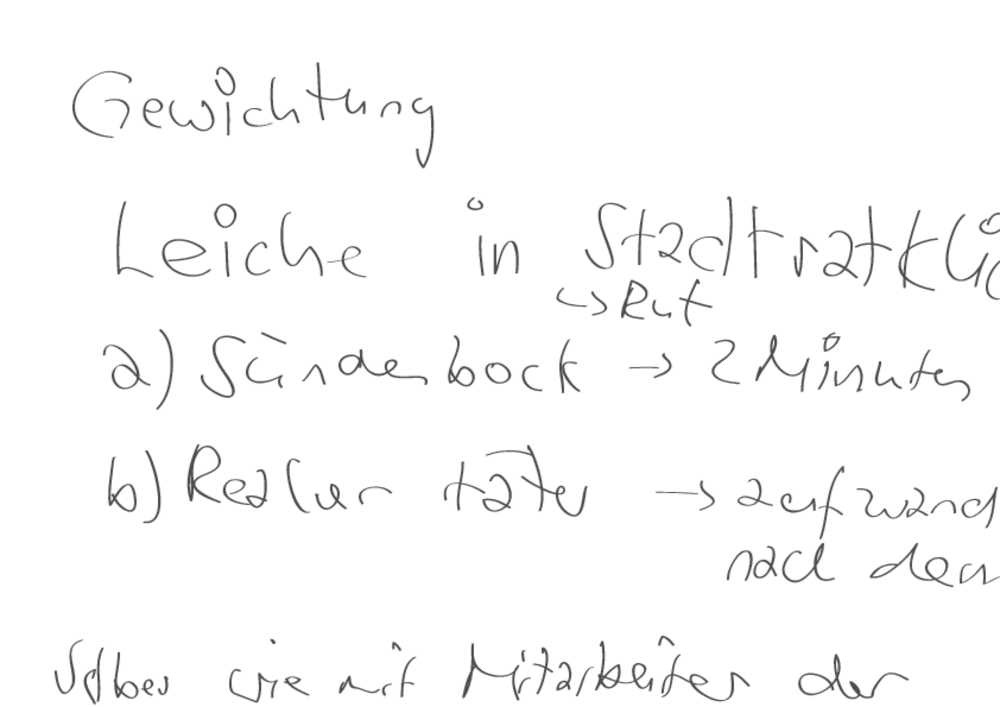 Gewichtung
Leiche in Stadtrat
↳ Rut
a) Sündenbock → 2 Minuten
b) Realer täter → aufwand
nach dem
wie mit Mitarbeiter der